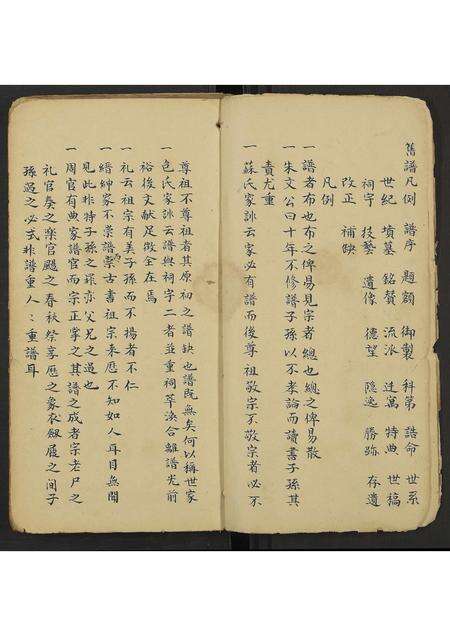 舊譜凡例 譜序 題額 御製 科第 誥命 世系
世紀 墳墓 銘贊 流派 遷寓 特典 世稿
祠宇 技藝 遺像 德望 隱逸 勝跡 存遺
改正 補缺
凡例
一 譜者布也布之俾易見宗者總也總之俾易散
一 朱文公曰十年不修譜子孫以不孝論而讀書子孫其
責尤重
一 蘇氏家訓云家必有譜而後尊祖敬宗不敬宗者必不
尊祖不尊祖者其原初之譜缺也譜既無矣何以稱世家
一 包氏家訓云譜與祠字二者並重祠萃渙合離譜光前
裕後文献足徵全在焉
一 礼云祖宗有美子孫而不揚者不仁
一 縉紳家不崇譜票古書祖宗来歷不知如人耳目無聞
見此非特子孫之羅亦父兄之過也
一 周官有典家譜官而宗正掌之其譜之成者宗老尸之
礼官奠之樂官颺之春秋祭享歷之象衣劔履之间子
孫過之必式非譜重人〻重譜耳